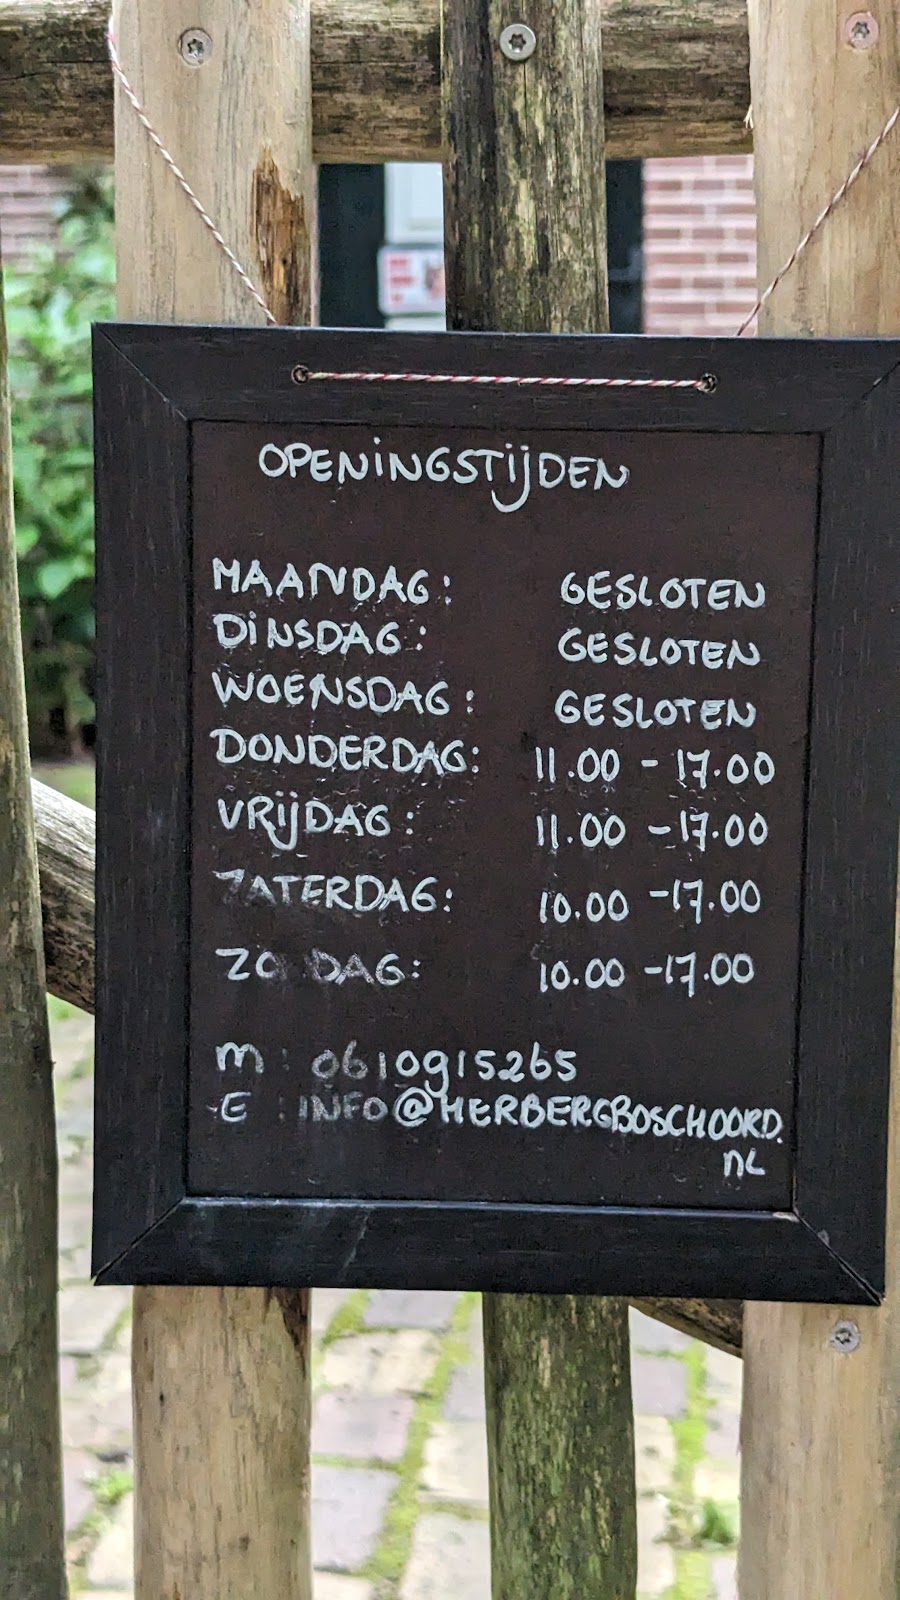 OPENINGSTIJDEN
MAANDAG: GESLOTEN
DINSDAG: GESLOTEN
WOENSDAG: GESLOTEN
DONDERDAG: 11.00 - 17.00
VRIJDAG: 11.00 - 17.00
ZATERDAG: 10.00 - 17.00
ZO DAG: 10.00 - 17.00
m: 0610915265
E: INFO@HERBERGBOSCHOORD.
nL